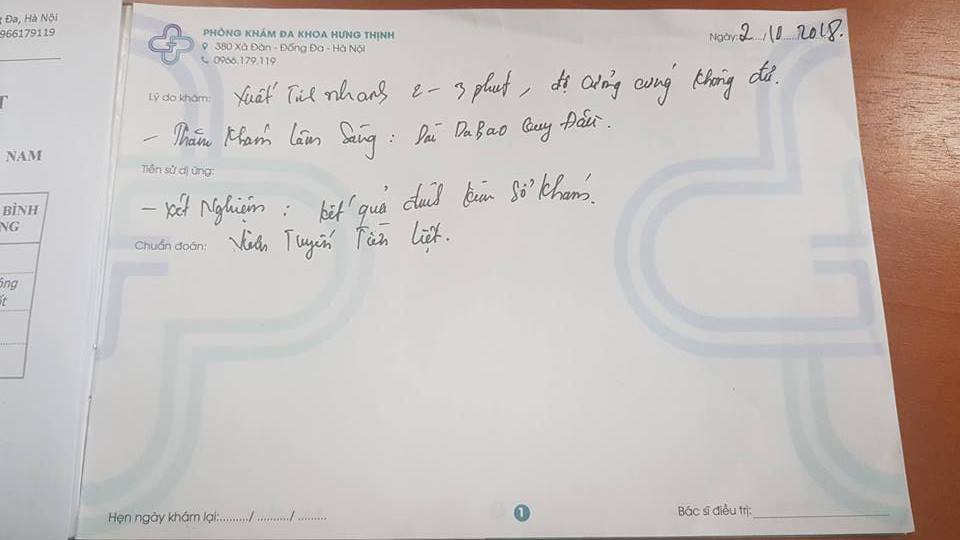 g Đa, Hà Nội
966179119
T
NAM
BÌNH
NG
ông
ốt
PHÒNG KHÁM ĐA KHOA HƯNG THỊNH
380 Xã Đàn - Đống Đa - Hà Nội
0966.179.119
Ngày: 2 / 10 2018.
Lý do khám: Xuất Tinh nhanh 2 - 3 phút, độ cương cứng không đủ.
- Thăm Khám Lâm Sàng: Dài Da Bao Quy Đầu.
Tiền sử dị ứng:
- Xét Nghiệm: kết quả đính kèm sổ khám.
Chuẩn đoán: Viêm Tuyến Tiền liệt.
Hẹn ngày khám lại:........../ .........../ .........
1
Bác sĩ điều trị: